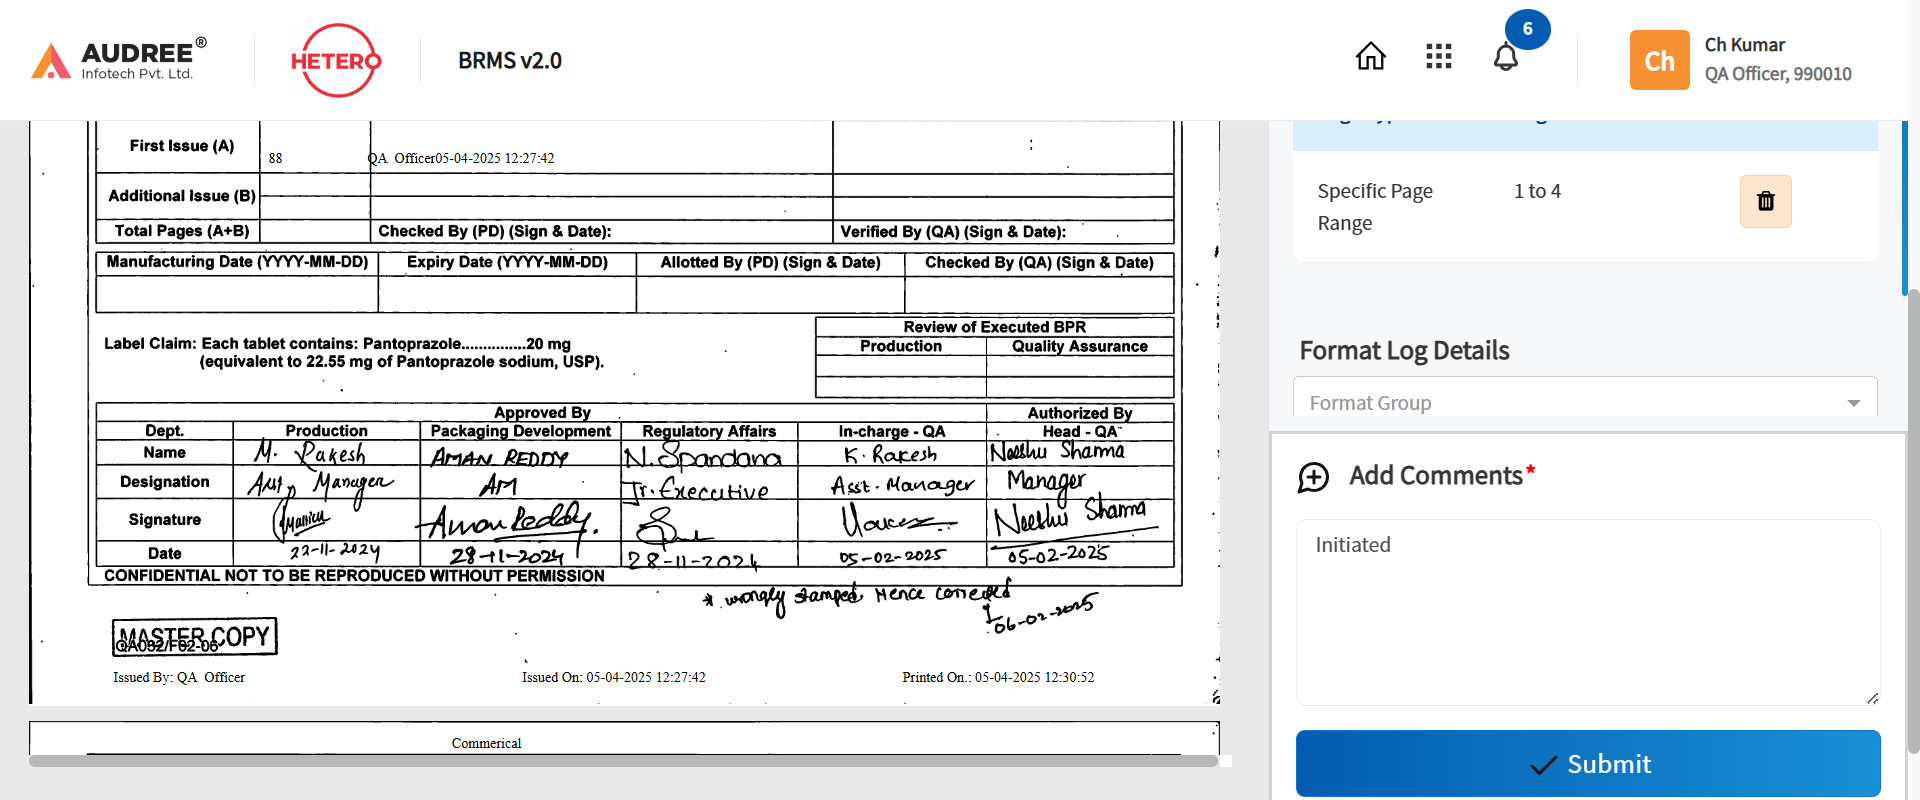 AUDREE®
Infotech Pvt. Ltd.
HETERO
BRMS v2.0
6
Ch
Ch Kumar
QA Officer, 990010
First Issue (A)
88
QA Officer05-04-2025 12:27:42
Additional Issue (B)
Total Pages (A+B)
Checked By (PD) (Sign & Date):
Verified By (QA) (Sign & Date):
Manufacturing Date (YYYY-MM-DD)
Expiry Date (YYYY-MM-DD)
Allotted By (PD) (Sign & Date)
Checked By (QA) (Sign & Date)
Review of Executed BPR
Production
Quality Assurance
Label Claim: Each tablet contains: Pantoprazole...............20 mg
(equivalent to 22.55 mg of Pantoprazole sodium, USP).
Approved By
Authorized By
Dept.
Production
Packaging Development
Regulatory Affairs
In-charge - QA
Head - QA
Name
M. Rakesh
AMAN REDDY
N. Spandana
K. Rakesh
Neeshu Sharma
Designation
Manager
AM
Jr. Executive
Asst. Manager
Manager
Signature
Aman Reddy.
Neeshu Sharma
Date
22-11-2024
28-11-2024
28-11-2024
05-02-2025
05-02-2025
CONFIDENTIAL NOT TO BE REPRODUCED WITHOUT PERMISSION
* wrongly stamped Hence corrected
06-02-2025
MASTER COPY
QA092/F02-06
Issued By: QA Officer
Issued On: 05-04-2025 12:27:42
Printed On.: 05-04-2025 12:30:52
Commerical
Specific Page
Range
1 to 4
Format Log Details
Format Group
Add Comments*
Initiated
Submit